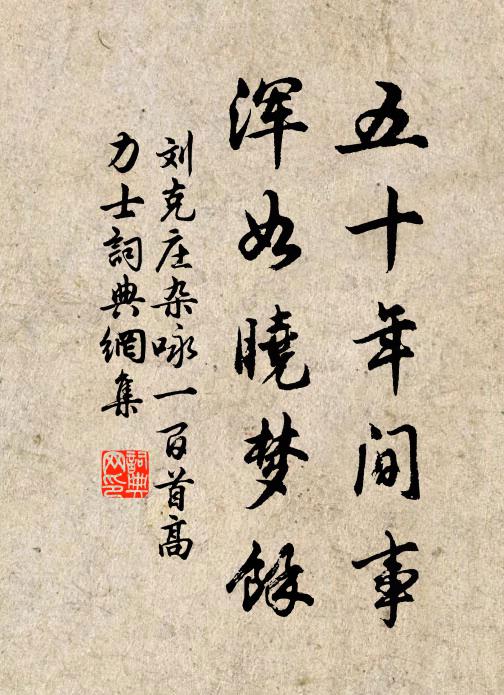 五十年间事
浑如曉梦餘
刘克庄杂咏一百首高
力士詞典網集
詞典
网印